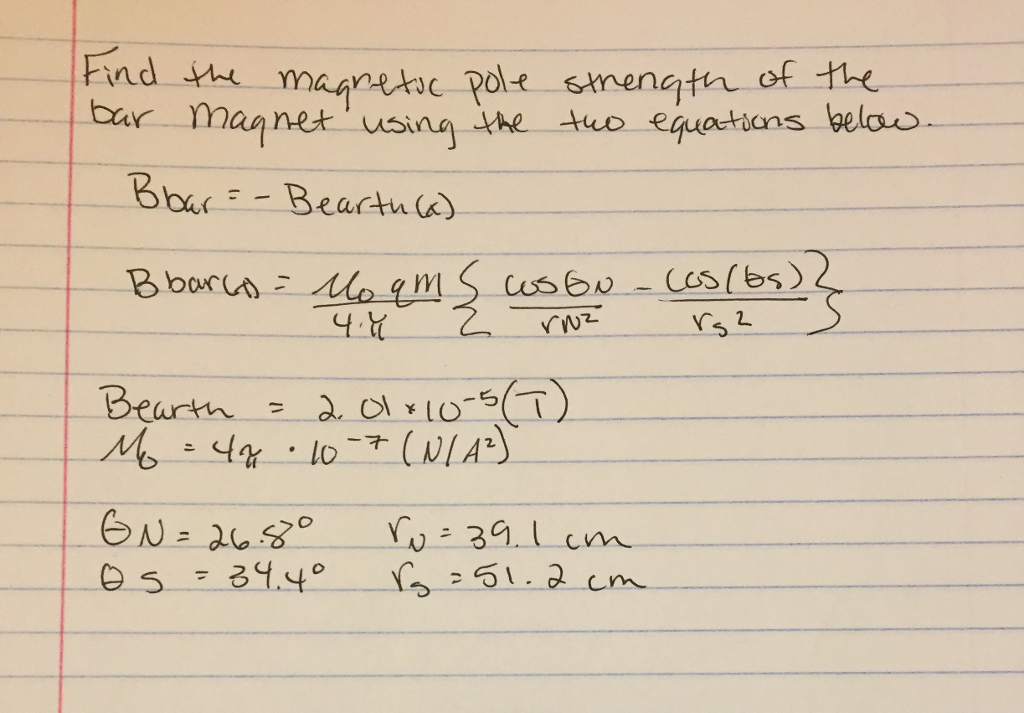 Find the magnetic pole strength of the
bar magnet using the two equations below.
Bbar = - Bearth(x)
Bbar(x) = μ₀ qm / 4·π { cosθN / rN² - cos(θs) / rs² }
Bearth = 2.01 * 10⁻⁵ (T)
μ₀ = 4π · 10⁻⁷ (N/A²)
θN = 26.8° rN = 39.1 cm
θs = 34.4° rs = 51.2 cm